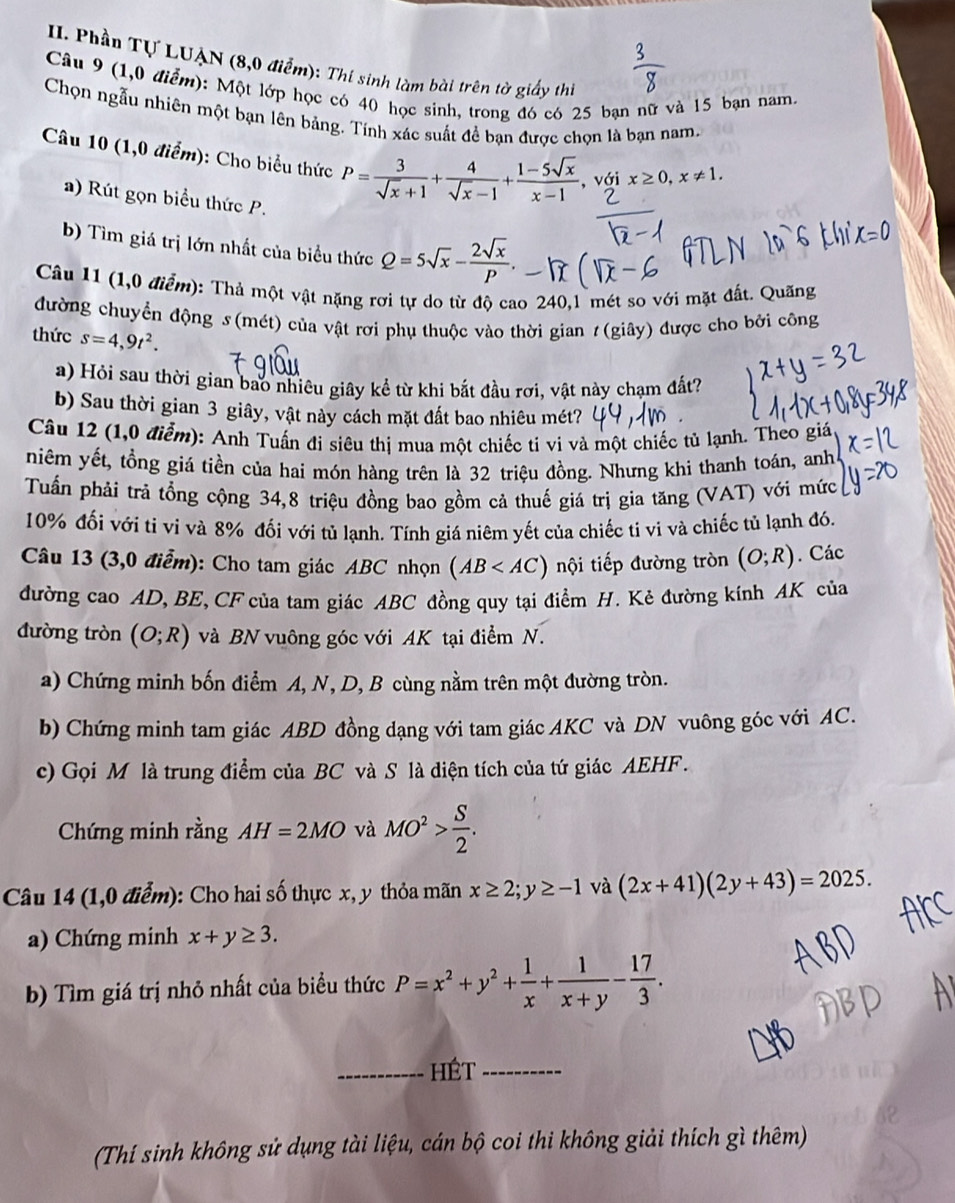 II. Phần TỰ LUẬN (8,0 điểm): Thí sinh làm bài trên tờ giấy thi
3/8
Câu 9 (1,0 điểm): Một lớp học có 40 học sinh, trong đó có 25 bạn nữ và 15 bạn nam.
Chọn ngẫu nhiên một bạn lên bảng. Tính xác suất để bạn được chọn là bạn nam.
Câu 10 (1,0 điểm): Cho biểu thức P = 3/(√x+1) + 4/(√x−1) + (1−5√x)/(x−1), với x ≥ 0, x ≠ 1.
a) Rút gọn biểu thức P.
2/(√x−1)
b) Tìm giá trị lớn nhất của biểu thức Q = 5√x − 2√x/P.
−√x(√x−6 GTLN là 6 khi x=0
Câu 11 (1,0 điểm): Thả một vật nặng rơi tự do từ độ cao 240,1 mét so với mặt đất. Quãng
đường chuyển động s(mét) của vật rơi phụ thuộc vào thời gian t(giây) được cho bởi công
thức s = 4,9t².
7 giâu
a) Hỏi sau thời gian bao nhiêu giây kể từ khi bắt đầu rơi, vật này chạm đất?
x+y=32
b) Sau thời gian 3 giây, vật này cách mặt đất bao nhiêu mét? 44,1m.
1,1x+0,8y=34,8
Câu 12 (1,0 điểm): Anh Tuấn đi siêu thị mua một chiếc ti vi và một chiếc tủ lạnh. Theo giá
x=12
niêm yết, tổng giá tiền của hai món hàng trên là 32 triệu đồng. Nhưng khi thanh toán, anh
y=20
Tuấn phải trả tổng cộng 34,8 triệu đồng bao gồm cả thuế giá trị gia tăng (VAT) với mức
10% đối với ti vi và 8% đối với tủ lạnh. Tính giá niêm yết của chiếc ti vi và chiếc tủ lạnh đó.
Câu 13 (3,0 điểm): Cho tam giác ABC nhọn (AB < AC) nội tiếp đường tròn (O;R). Các
đường cao AD, BE, CF của tam giác ABC đồng quy tại điểm H. Kẻ đường kính AK của
đường tròn (O;R) và BN vuông góc với AK tại điểm N.
a) Chứng minh bốn điểm A, N, D, B cùng nằm trên một đường tròn.
b) Chứng minh tam giác ABD đồng dạng với tam giác AKC và DN vuông góc với AC.
c) Gọi M là trung điểm của BC và S là diện tích của tứ giác AEHF.
Chứng minh rằng AH = 2MO và MO² > S/2.
Câu 14 (1,0 điểm): Cho hai số thực x, y thỏa mãn x ≥ 2; y ≥ −1 và (2x + 41)(2y + 43) = 2025.
a) Chứng minh x + y ≥ 3.
ABD AKC
b) Tìm giá trị nhỏ nhất của biểu thức P = x² + y² + 1/x + 1/(x+y) − 17/3.
ABD
----------- HẾT ----------
(Thí sinh không sử dụng tài liệu, cán bộ coi thi không giải thích gì thêm)